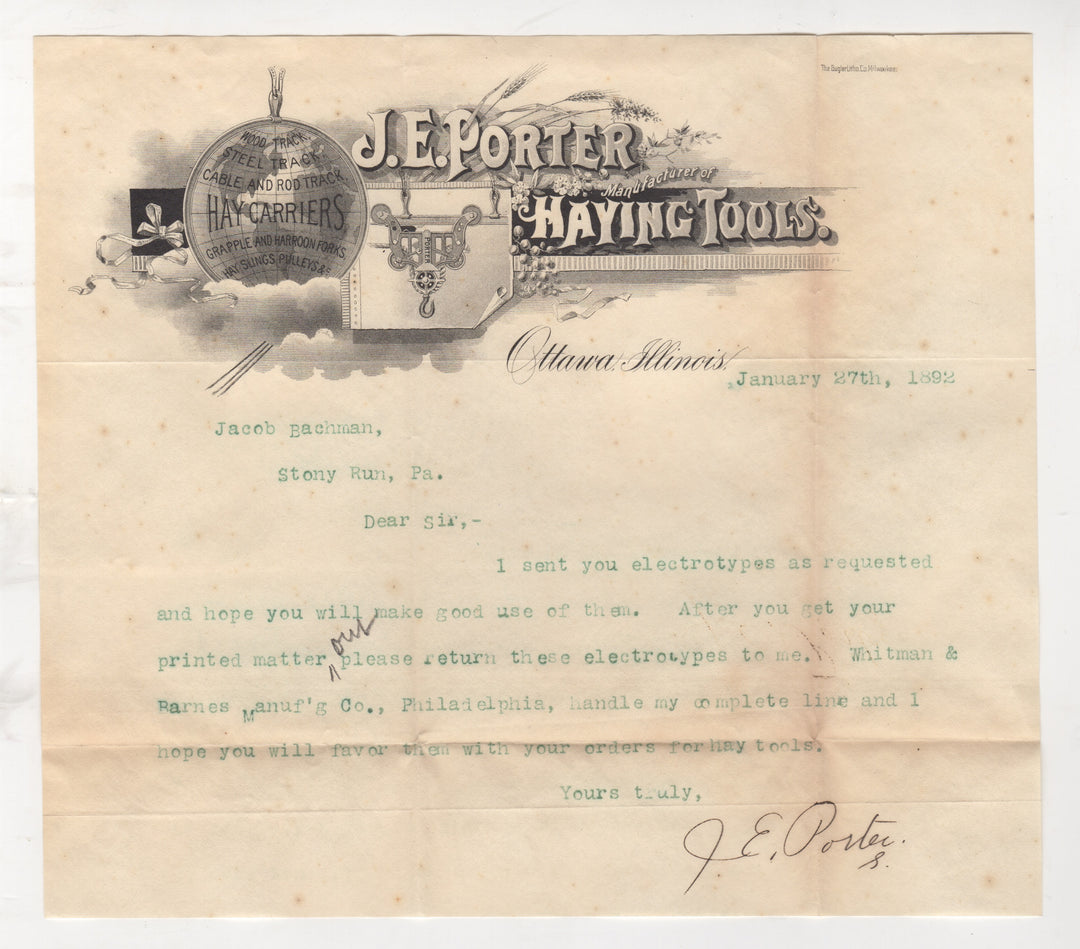 The Gugler Litho. Co. Milwaukee
J. E. PORTER
Manufacturer of
HAYING TOOLS.
WOOD TRACK,
STEEL TRACK
CABLE AND ROD TRACK
HAY CARRIERS
GRAPPLE AND HARROON FORKS
HAY SLINGS PULLEYS &c
PORTER
Ottawa, Illinois,
January 27th, 1892
Jacob Bachman,
Stony Run, Pa.
Dear Sir,-
I sent you electrotypes as requested
and hope you will make good use of them. After you get your
out
printed matter, please return these electrotypes to me. Whitman &
Barnes Manuf'g Co., Philadelphia, handle my complete line and I
hope you will favor them with your orders for hay tools.
Yours truly,
J. E. Porter.
S.